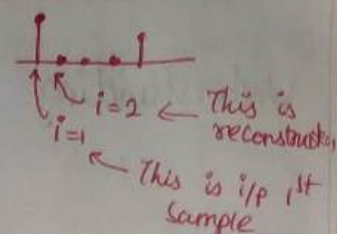 i=2 ← This is
reconstructed,
i=1
This is i/p 1st
Sample